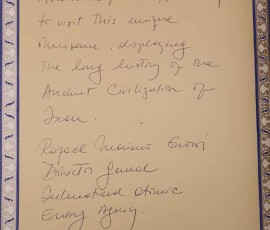 to visit this unique
Museum, displaying
the long history of the
Ancient Civilization of
Iran.
Rafael Mariano Grossi
Director General
International Atomic
Energy Agency.